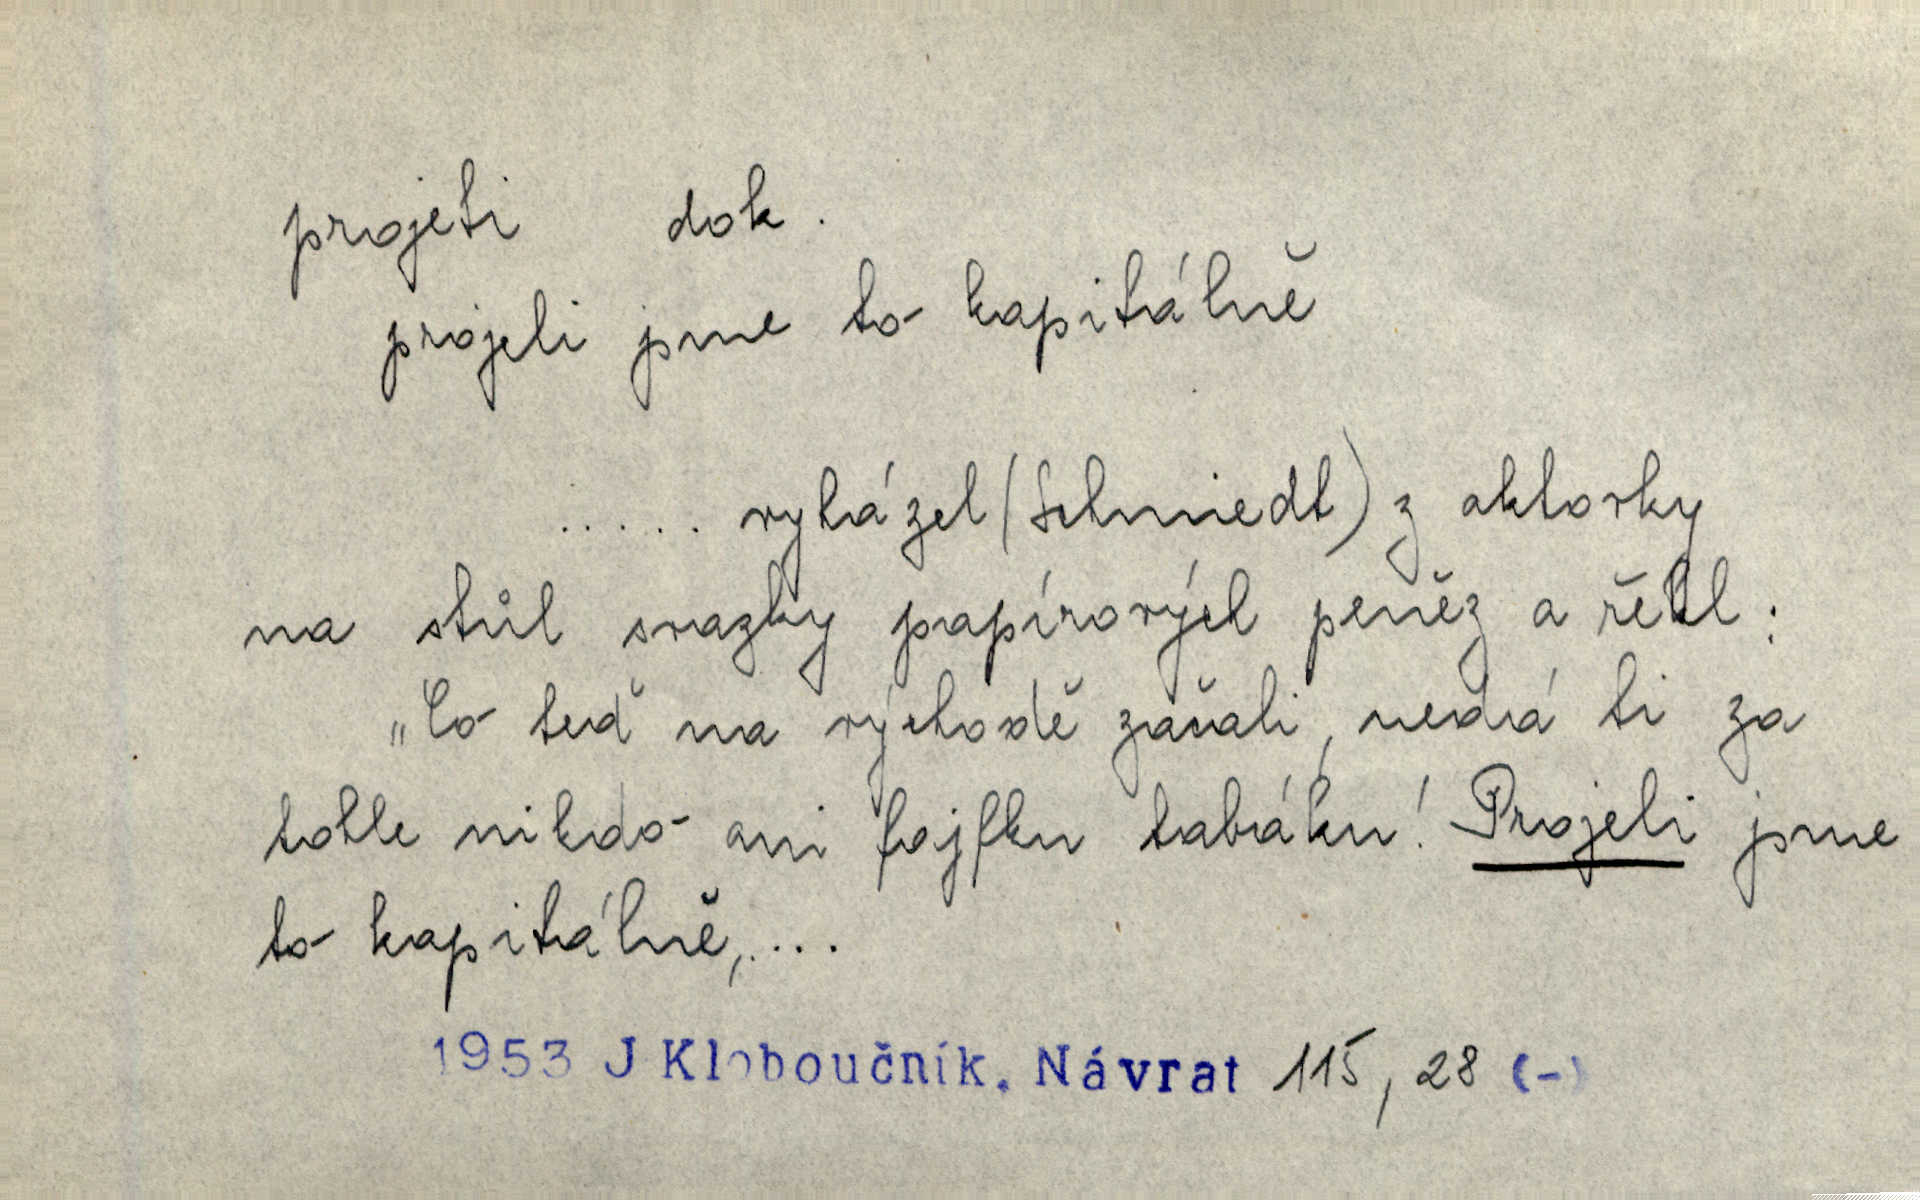 projeti dok.
projeli jsme to kapitálně
..... vyházel (Schmiedt) z aktovky
na stůl svazky papírových peněz a řekl:
„Co teď na východě začali, nedá ti za
tohle nikdo ani fajfku tabáku! Projeli jsme
to kapitálně,....
1953 J Kloboučník, Návrat 115, 28 (-)